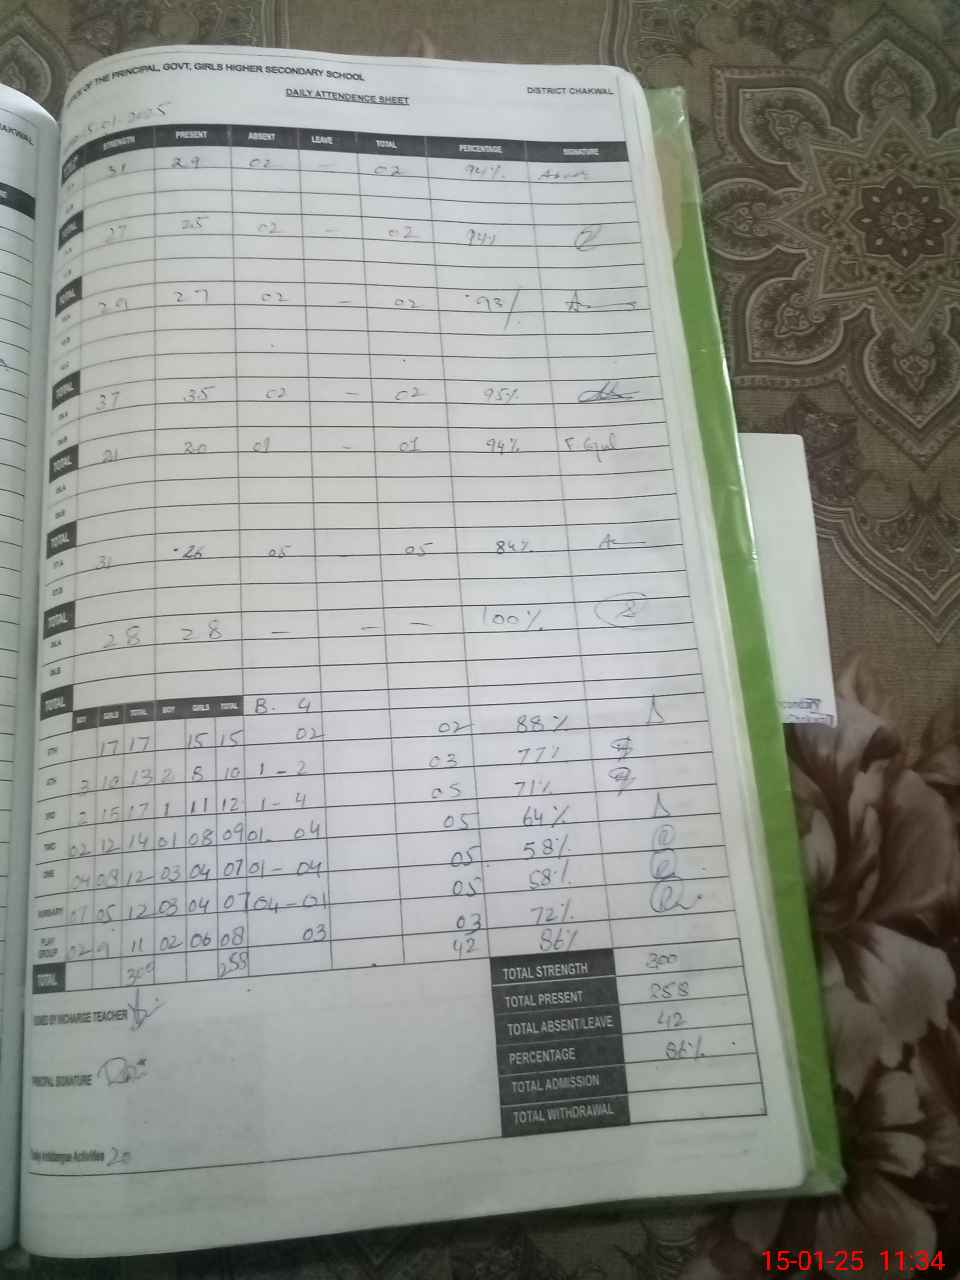 OF THE PRINCIPAL, GOVT, GIRLS HIGHER SECONDARY SCHOOL
DAILY ATTENDENCE SHEET
DISTRICT CHAKWAL
15.01.2025
STRENGTH PRESENT ABSENT LEAVE TOTAL PERCENTAGE SIGNATURE
31 29 02 — 02 94%
TOTAL
27 25 02 — 02 94%
TOTAL
29 27 02 — 02 93%
TOTAL
37 35 02 — 02 95%
TOTAL 21 20 01 - 01 94% F. Gul
TOTAL
31 26 05 05 84%
TOTAL
28 28 — — — 100%
TOTAL
BOY GIRLS TOTAL BOY GIRLS TOTAL B. G
5TH 17 17 15 15 02 02 88%
4TH 3 10 13 2 8 10 1 - 2 03 77%
3RD 2 15 17 1 11 12 1 - 4 05 71%
TWO 02 12 14 01 08 09 01 - 04 05 64%
ONE 04 08 12 03 04 07 01 - 04 05 58%
NURSARY 07 05 12 03 04 07 04 - 01 05 58%
PLAY GROUP 02 9 11 02 06 08 03 03 72%
TOTAL 300 258 42 86%
TOTAL STRENGTH 300
TOTAL PRESENT 258
TOTAL ABSENT/LEAVE 42
PERCENTAGE 86%
TOTAL ADMISSION
TOTAL WITHDRAWAL
SIGNED BY INCHARGE TEACHER
PRINCIPAL SIGNATURE
Activities 20
condary
Chakwal
CHAKWAL
15-01-25 11:34